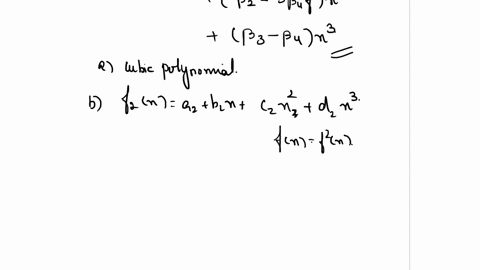 + (β₂ - 3β₄ξ) x²
+ (β₃ - β₄) x³
a) cubic polynomial.
b) f₂(x) = a₂ + b₂x + c₂x² + d₂x³.
f(x) = f²(x).